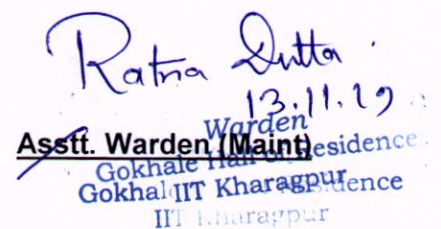 Ratna Dutta
13.11.19
Warden
Asstt. Warden (Maint)
Gokhale Hall of Residence
Gokhal IIT Kharagpur dence
IIT Kharagpur